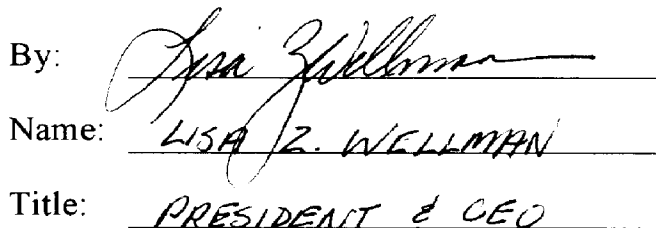 By: Lisa Z Wellman
Name: LISA Z. WELLMAN
Title: PRESIDENT & CEO